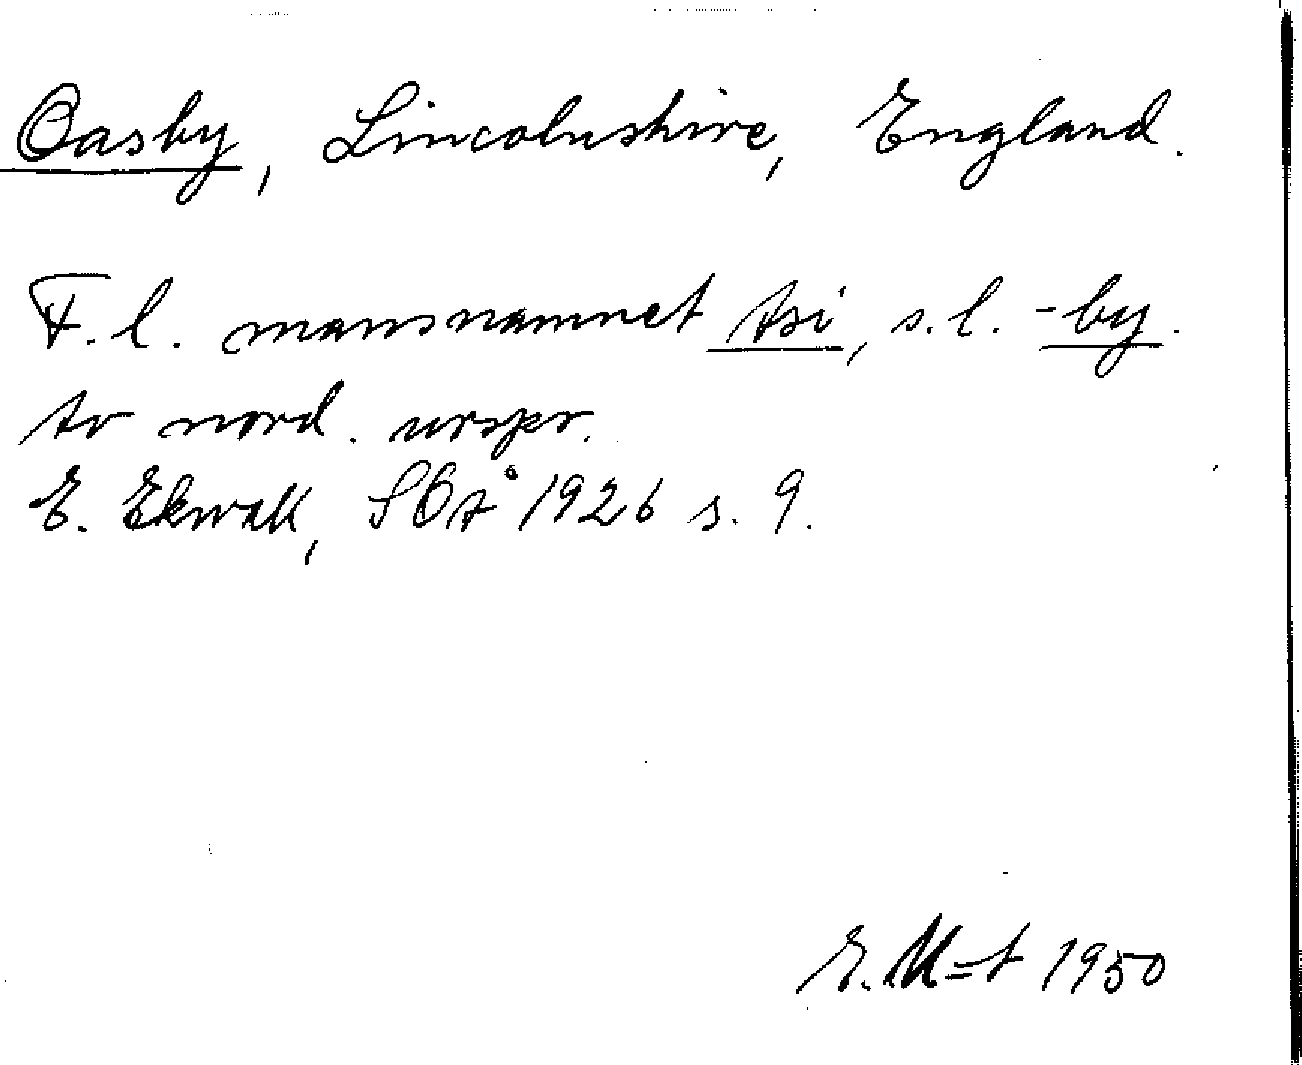 Oasby, Lincolnshire, England.
F.l. mansnamnet Asi, s.l. -by.
Av nord. urspr.
E. Ekwall, SOÅ 1926 s. 9.
1950